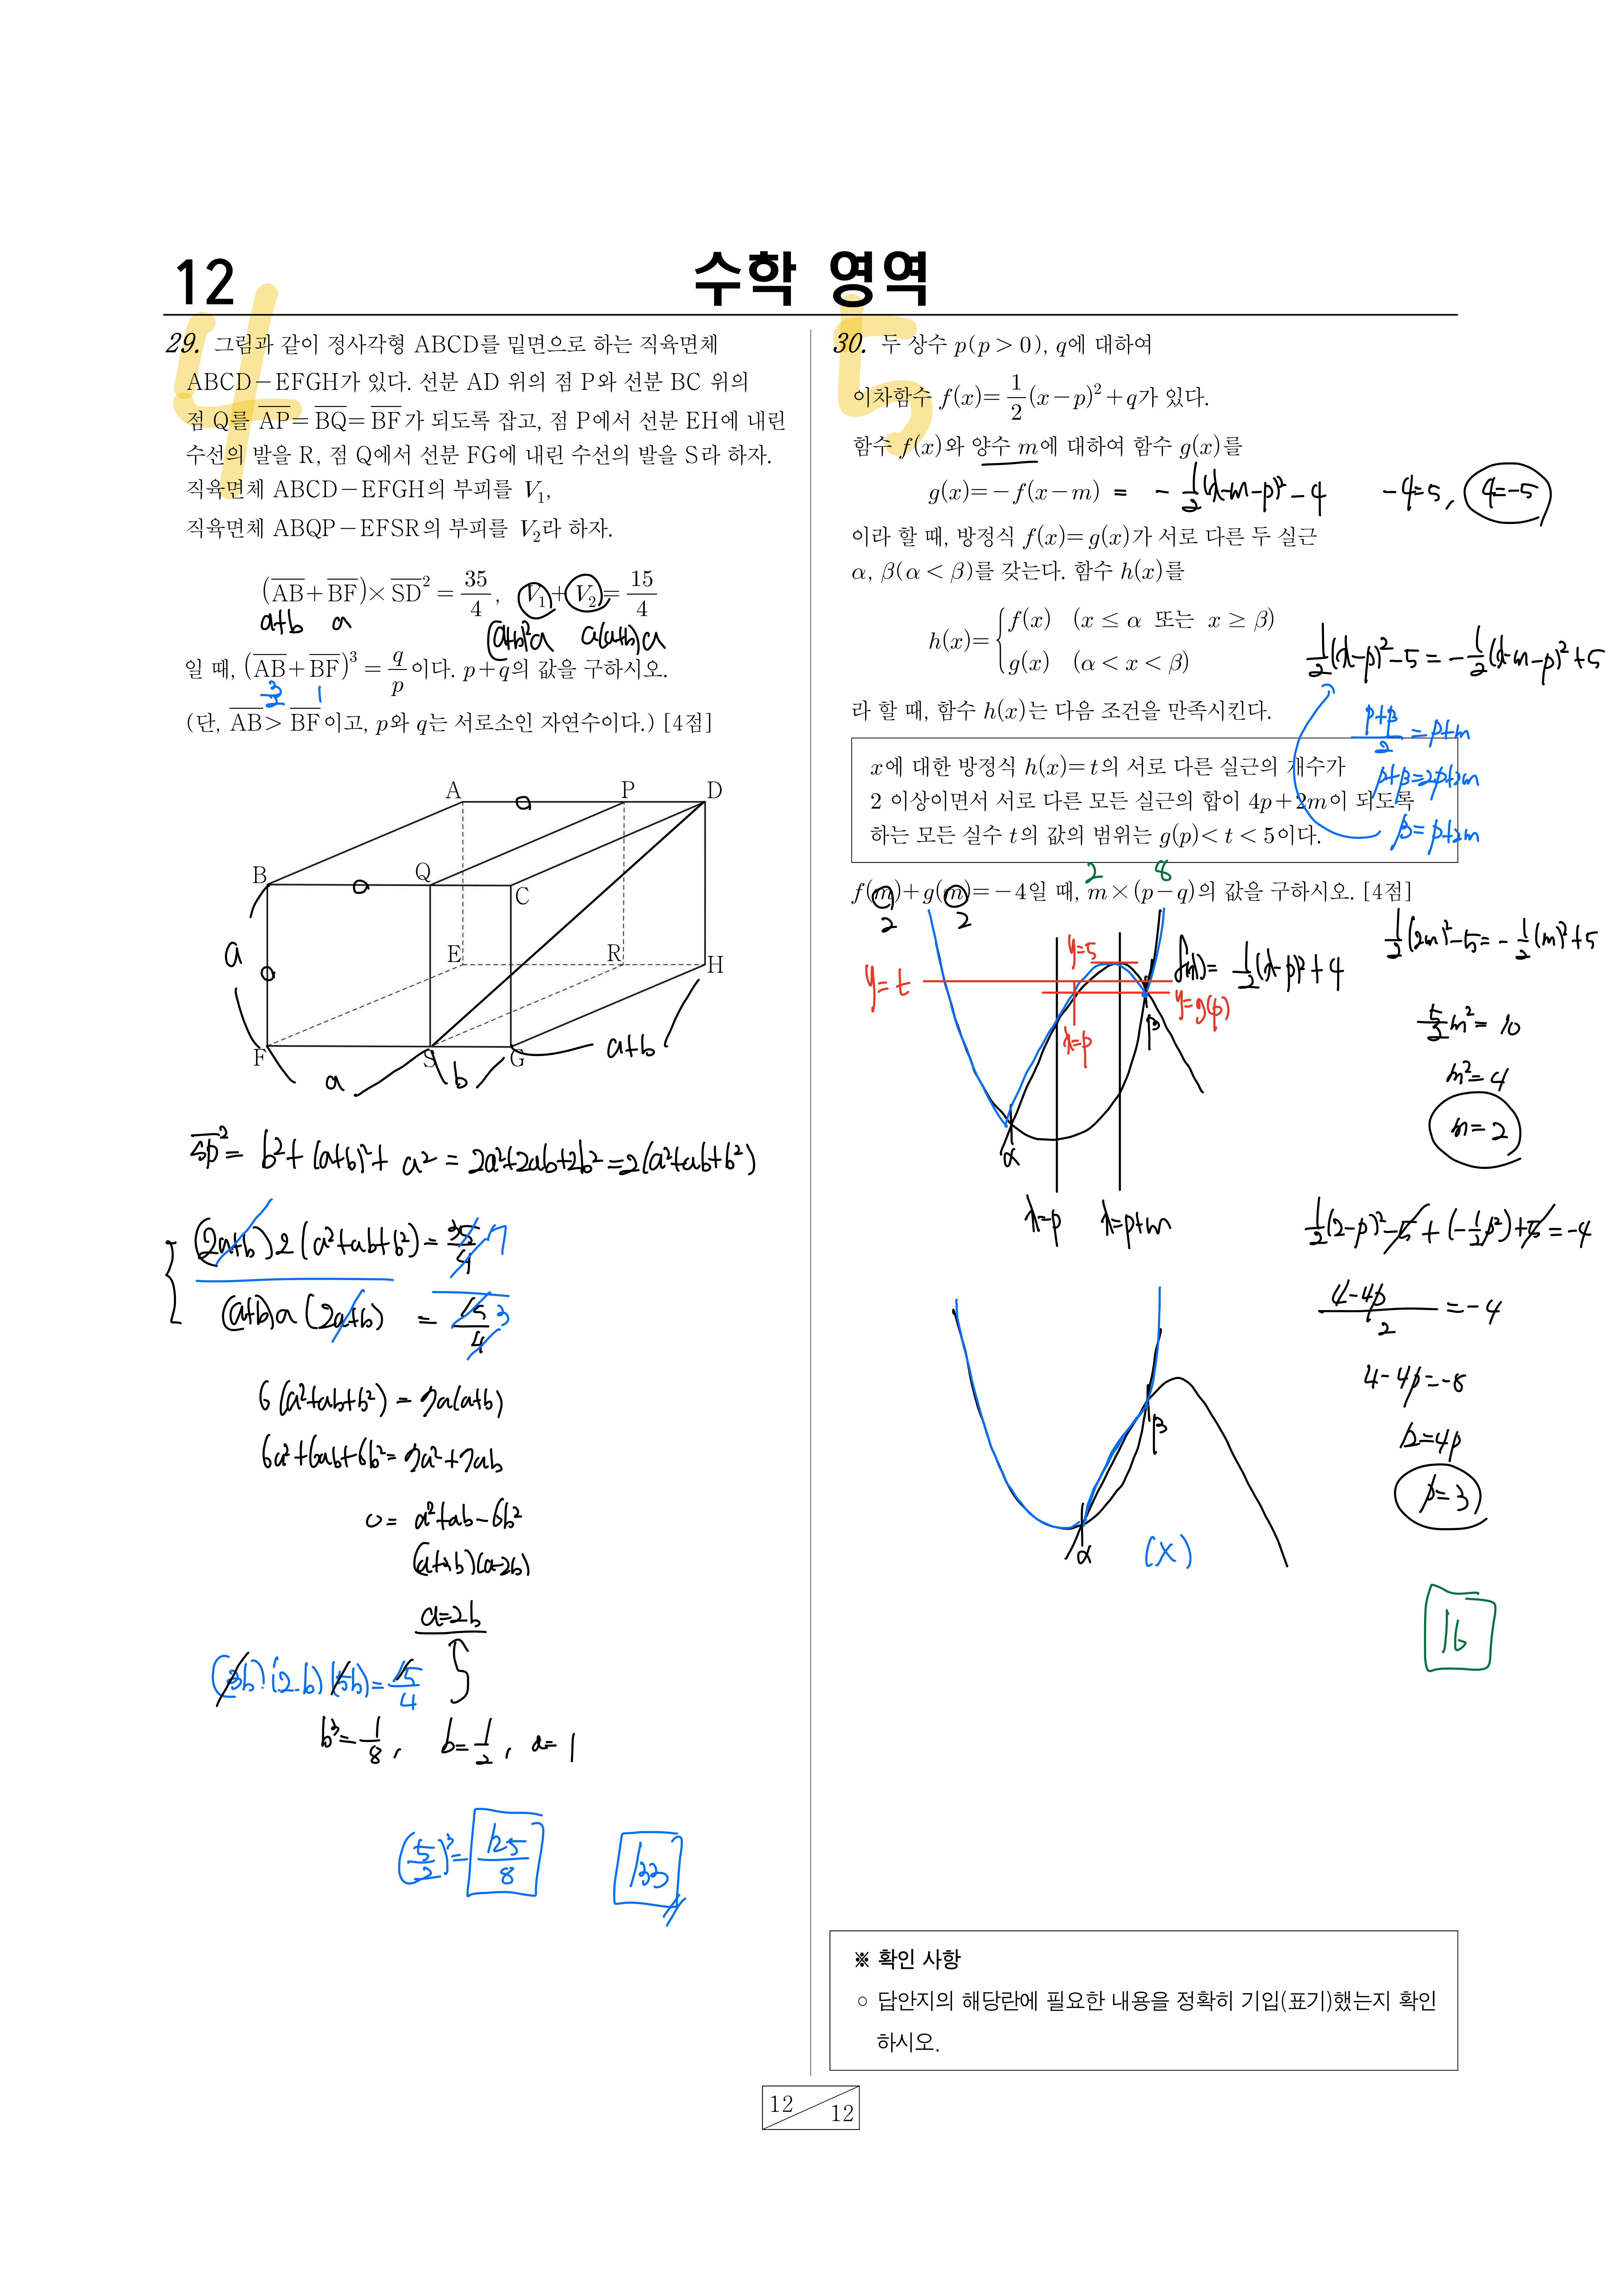 12
수학 영역
4
29. 그림과 같이 정사각형 ABCD를 밑면으로 하는 직육면체
ABCD-EFGH가 있다. 선분 AD 위의 점 P와 선분 BC 위의
점 Q를 AP=BQ=BF가 되도록 잡고, 점 P에서 선분 EH에 내린
수선의 발을 R, 점 Q에서 선분 FG에 내린 수선의 발을 S라 하자.
직육면체 ABCD-EFGH의 부피를 V₁,
직육면체 ABQP-EFSR의 부피를 V₂라 하자.
(AB+BF)×SD² = 35/4, V₁+V₂ = 15/4
a+b a (a+b)²a a(a+b)a
일 때, (AB+BF)³ = q/p 이다. p+q의 값을 구하시오.
3/2 1
(단, AB > BF이고, p와 q는 서로소인 자연수이다.) [4점]
A P D
B Q C
E R H
F S G
a
a b a+b
SD² = b²+(a+b)²+a² = 2a²+2ab+2b² = 2(a²+ab+b²)
(2a+b)2(a²+ab+b²) = 35/4 7
(a+b)a(2a+b) = 15/4 3
6(a²+ab+b²) = 7a(a+b)
6a²+6ab+6b² = 7a²+7ab
0 = a²+ab-6b²
(a+3b)(a-2b)
a=2b
(3b)·(2b)(5b) = 15/4
b³=1/8, b=1/2, a=1
(5/2)³ = 125/8
133
5
30. 두 상수 p(p > 0), q에 대하여
이차함수 f(x) = 1/2(x-p)²+q가 있다.
함수 f(x)와 양수 m에 대하여 함수 g(x)를
g(x) = -f(x-m) = -1/2(x-m-p)²-q -q=5, q=-5
이라 할 때, 방정식 f(x)=g(x)가 서로 다른 두 실근
α, β(α < β)를 갖는다. 함수 h(x)를
h(x) = { f(x) (x ≤ α 또는 x ≥ β)
g(x) (α < x < β)
1/2(x-p)²-5 = -1/2(x-m-p)²+5
라 할 때, 함수 h(x)는 다음 조건을 만족시킨다.
x에 대한 방정식 h(x)=t의 서로 다른 실근의 개수가
2 이상이면서 서로 다른 모든 실근의 합이 4p+2m이 되도록
하는 모든 실수 t의 값의 범위는 g(p)< t < 5이다.
(p+β)/2 = p+m
p+β=2p+2m
β=p+2m
2 8
f(m)+g(m)=-4일 때, m×(p-q)의 값을 구하시오. [4점]
2 2
y=5
y=t
f(x)=1/2(x-p)²+q
y=g(p)
x=p
β
α
x=p x=p+m
1/2(2m)²-5 = -1/2(m)²+5
5/2m² = 10
m²=4
m=2
1/2(2-p)²-5+(-1/2p²)+5 = -4
(4-4p)/2 = -4
4-4p=-8
12=4p
p=3
β
α (X)
16
※ 확인 사항
○ 답안지의 해당란에 필요한 내용을 정확히 기입(표기)했는지 확인
하시오.
12 12